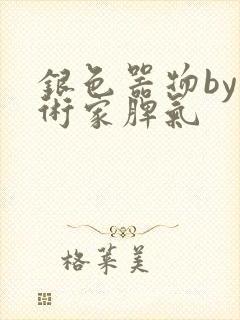 銀色器物by
術家脾氣
格萊美